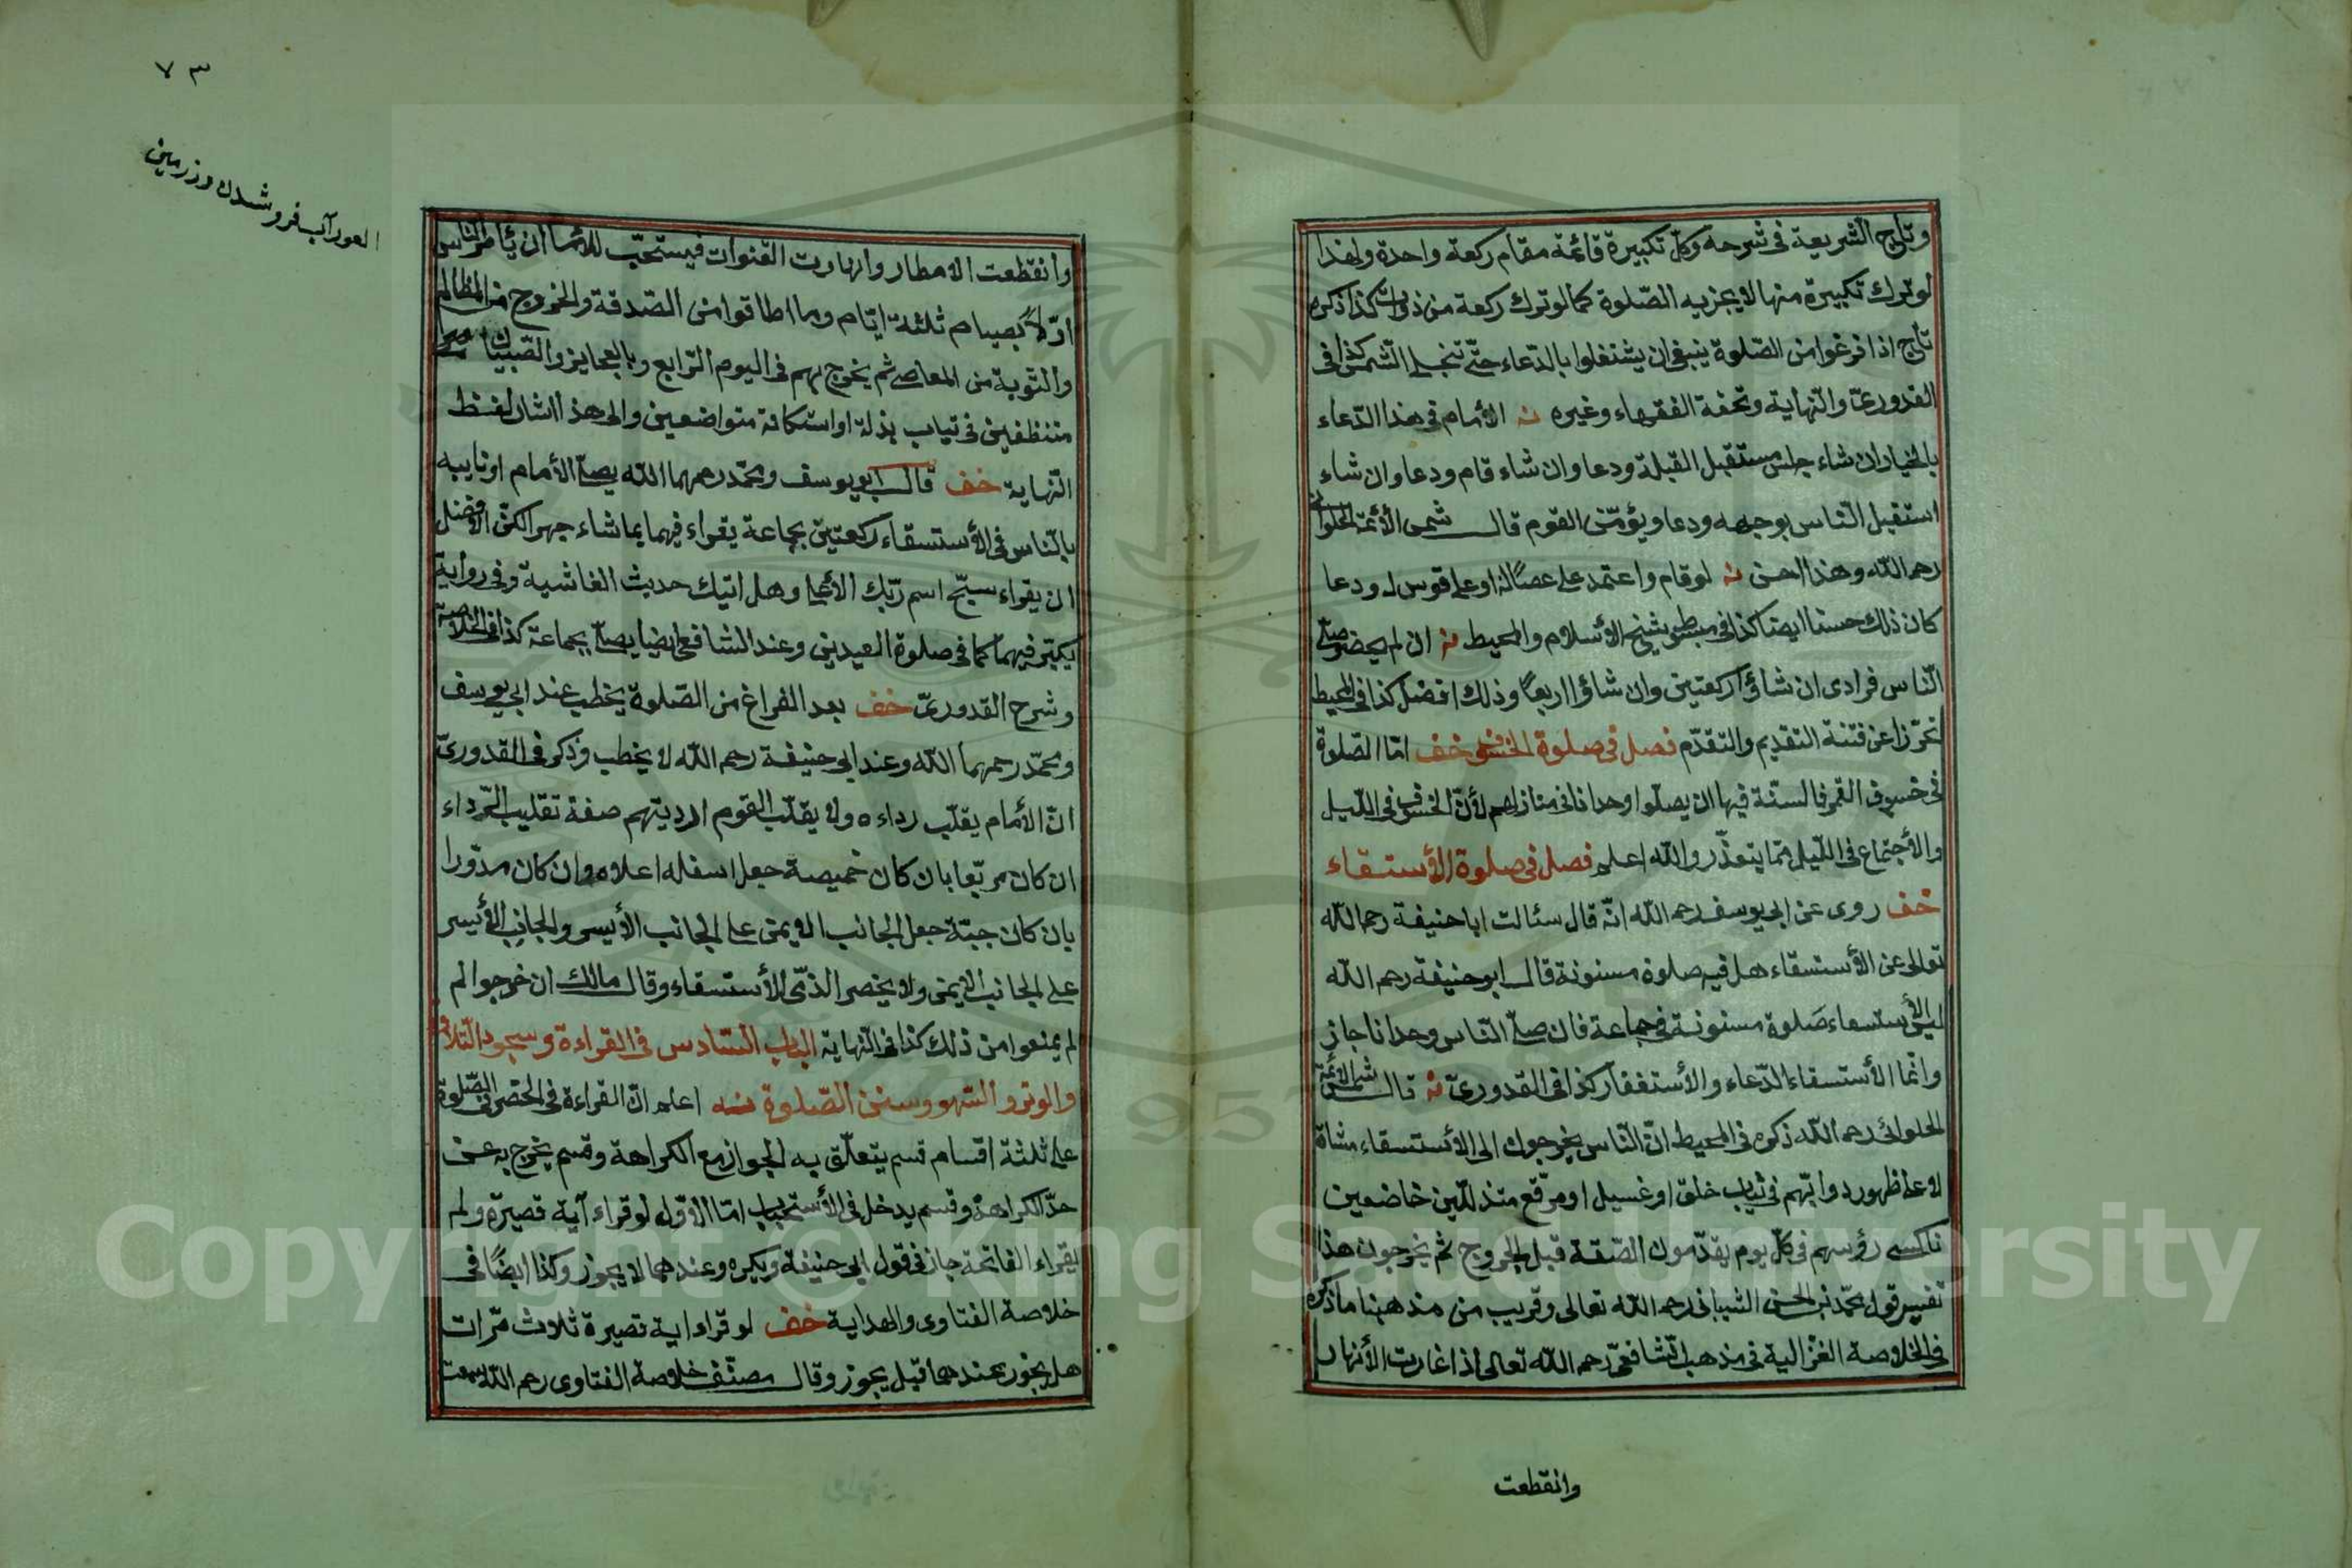 وتاج الشريعة فى شرحه وكل تكبيرة قائمة مقام ركعة واحدة ولهذا
لو ترك تكبيرة منها لا يجزيه الصّلوة كما لو ترك ركعة من ذوات كذا ذكره
تاج اذا فرغوا من الصّلوة ينبغى ان يشتغلوا بالدّعاء حتّى تنجلى الشّمس كذا فى
القدورىّ والنّهاية وتحفة الفقهاء وغيره الأمام فى هذا الدّعاء
بالخيار ان شاء جلس مستقبل القبلة ودعا وان شاء قام ودعا وان شاء
استقبل النّاس بوجهه ودعا ويؤمّن القوم قال شمس الأئمّة الحلوانى
رحمه الله وهذا احسن لو قام واعتمد على عصًا له او على قوس له ودعا
كان ذلك حسنا ايضا كذا فى مبسوط شيخ الأسلام والمحيط ان لم يحضر صلّى
النّاس فرادى ان شاؤا ركعتين وان شاؤا اربعًا وذلك افضل كذا فى المحيط
تحرّزا عن فتنة التقديم والتقدّم فصل فى صلوة الخسوف خف امّا الصّلوة
فى خسوف القمر فالسنّة فيها ان يصلّوا وحدانا فى منازلهم لأنّ الخسوف فى اللّيل
والأجتماع فى اللّيل ممّا يتعذّر والله اعلم فصل فى صلوة الأستسقاء
خف روى عن ابى يوسف رحمه الله انّه قال سئالت ابا حنيفة رحمه الله
تعالى عن الأستسقاء هل فيه صلوة مسنونة قال ابو حنيفة رحمه الله
ليس فى الأستسقاء صَلوة مسنونة فى جماعة فان صلّى النّاس وحدانا جاز
وانّما الأستسقاء الدّعاء والأستغفار كذا فى القدورىّ قال شمس الأئمّة
الحلوائى رحمه الله ذكره فى المحيط انّ النّاس يخرجون الى الأستسقاء مشاة
لا على ظهور دوابّهم فى ثياب خلق او غسيل او مرقّع متذلّلين خاضعين
ناكسى رؤسهم فى كلّ يوم يقدّمون الصّدقة قبل الخروج ثم يخرجون هذا
تفسير قول محمّد بن الحسن الشيبانى رحمه الله تعالى وقريب من مذهبنا ما ذكره
فى الخلاصة الغزالية فى مذهب الشّافعىّ رحمه الله تعالى اذا غارت الأنهار
وانقطعت
٧٣
العور آب فرو شدن در زمين
وانقطعت الامطار وانهارت القنوات فيستحبّ للأمام ان يأمر النّاس
اوّلاً بصيام ثلثة ايّام وما اطاقوا من الصّدقة والخروج من المظالم
والتّوبة من المعاصى ثم يخرج بهم فى اليوم الرّابع وبالعجايز والصّبيان
متنظفين فى ثياب بذلة او استكانة متواضعين والى هذا اشار لفظ
النّهاية خف قال ابو يوسف ومحمّد رحمهما الله يصلّى الأمام او نايبه
بالنّاس فى الأستسقاء ركعتين بجماعة يقراء فيهما بما شاء جهرا لكن الافضل
ان يقراء سبّح اسم ربّك الأعلى وهل اتيك حديث الغاشية وفى رواية
يكبّر فيهما كما فى صلوة العيدين وعند الشافعى ايضا يصلّى بجماعة كذا فى الخلاصة
وشرح القدورىّ خف بعد الفراغ من الصّلوة يخطب عند ابى يوسف
ومحمّد رحمهما الله وعند ابى حنيفة رحمه الله لا يخطب وذكر فى القدورىّ
انّ الأمام يقلّب رداءه ولا يقلّب القوم ارديتهم صفة تقليب الرّداء
ان كان مربّعا بان كان خميصة جعل اسفله اعلاه وان كان مدّورا
بان كان جبّة جعل الجانب الايمن على الجانب الأيسر والجانب الأيسر
على الجانب الايمن ولا يحضر الذمّى للأستسقاء وقال مالك ان خرجوا لم
لم يمنعوا من ذلك كذا فى النّهاية الباب السّادس فى القراءة وسجود التّلاوة
والوتر والسّهو وسنن الصّلوة اعلم انّ القراءة فى الحضر فى الصّلوة
على ثلثة اقسام قسم يتعلّق به الجواز مع الكراهة وقسم يخرج به عن
حدّ الكراهة وقسم يدخل فى الأستحباب امّا الاوّل لو قراء آية قصيرة ولم
يقراء الفاتحة جاز فى قول ابى حنيفة ويكره وعندهما لا يجوز وكذا ايضًا فى
خلاصة الفتاوى والهداية خف لو قراء اية قصيرة ثلاث مرّات
هل يجوز عندهما قيل يجوز وقال مصنّف خلاصة الفتاوى رحمه الله سمعت
Copyright © King Saud University